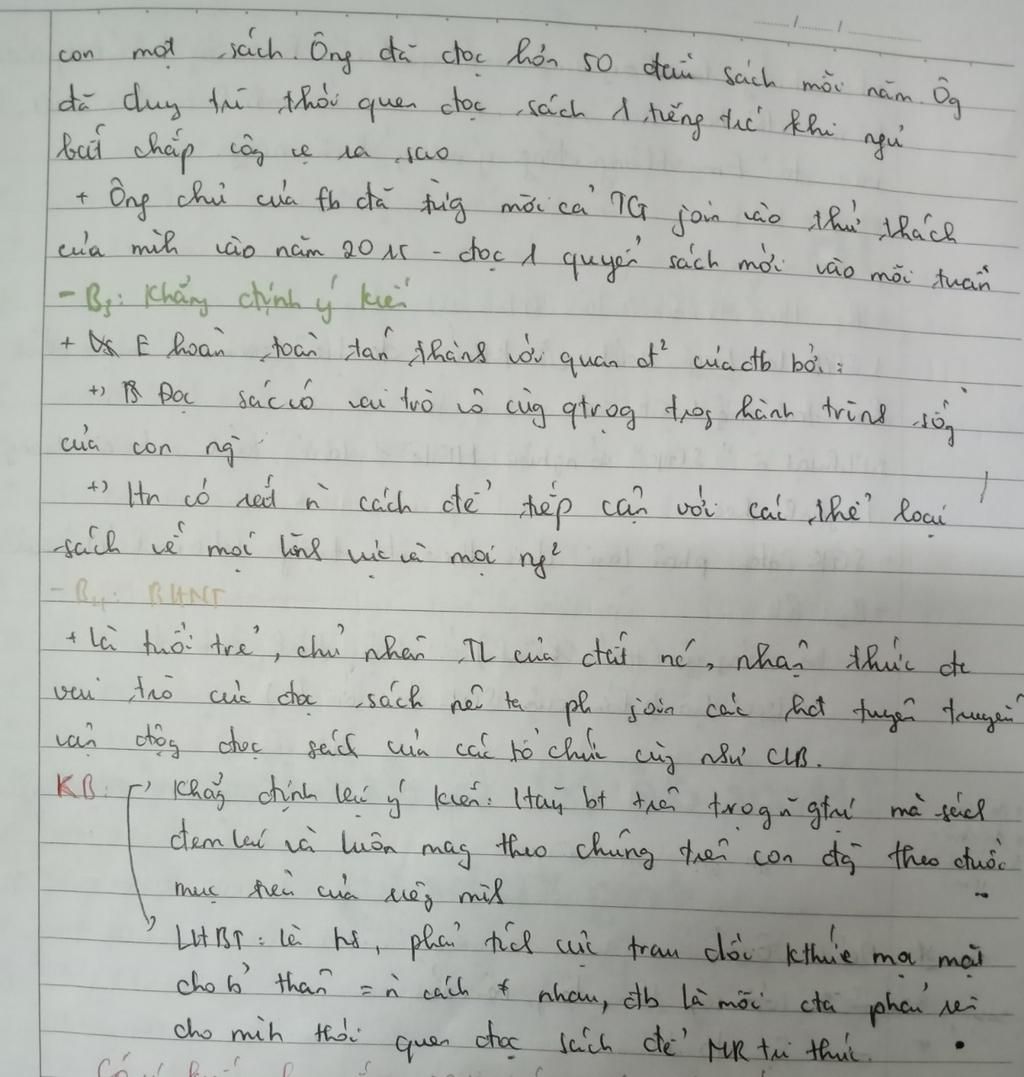 con mọt sách. Ông đã đọc hơn 50 đầu sách mỗi năm. Ôg
đã duy trì thói quen đọc sách 1 tiếng trc khi ngủ
bất chấp côg vc ra sao
+ Ông chủ của fb đã từg mời cả TG join vào thử thách
của mìh vào năm 2015 - đọc 1 quyển sách mới vào mỗi tuần
- B3: Khẳg định ý kiến
+ E hoàn toàn tán thành với quan đ² của đb bởi:
+) Đọc sác có vai trò vô cùg qtrọg trog hành trình sốg
của con ng
+) Htr có rất n cách để tiếp cận với các thể loại
sách về mọi lĩnh vực và mọi ng²
- B4: BHNT
+ Là tuổi trẻ, chủ nhân TL của đất nc, nhận thức đc
vai trò của đọc sách nên ta ph join các hđ tuyên truyền
vận độg đọc sách của các tổ chức cũg như CLB.
KB: Khẳg định lại ý kiến: Hãy bt trân trọg n gtrị mà sách
đem lại và luôn mag theo chúng trên con đg theo đuổi
mục tiêu của riêg mìh
LHBT: là hs, phải tích cực trau dồi kthức mọi mặt
cho b' thân = n cách ≠ nhau, đb là mỗi cta phải rèn
cho mìh thói quen đọc sách để MR tri thức.